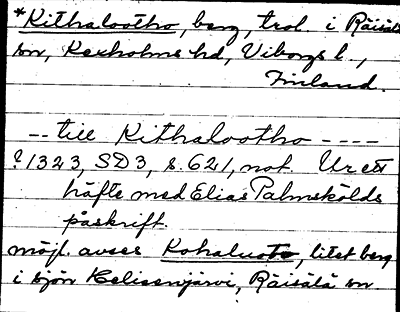 *Kithalootho, berg, trol. i Räisälä
sn, Kexholms hd, Viborgs l.,
Finland.
-- till Kithalootho ----
? 1323, SD3, s. 621, not. Ur ett
häfte med Elias Palmskölds
påskrift.
möjl. avses Kohaluoto, litet berg
i sjön Helisenjärvi, Räisälä sn